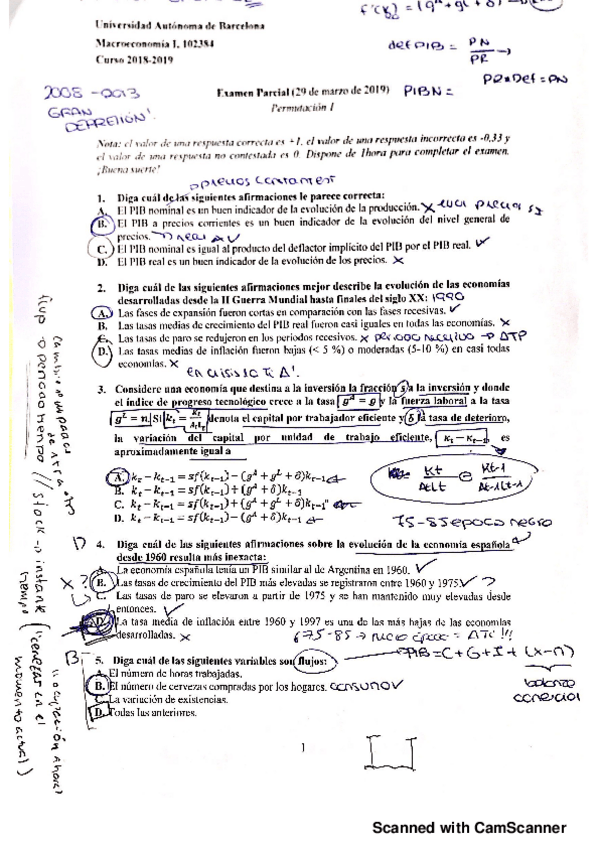 Universidad Autónoma de Barcelona
Macroeconomía I, 102384
Curso 2018-2019
def PIB = PN / PR
PR * Def = PN
PIBN =
2008 - 2013
GRAN
Examen Parcial (29 de marzo de 2019)
Permutación 1
Nota: el valor de una respuesta correcta es +1, el valor de una respuesta incorrecta es -0,33 y
el valor de una respuesta no contestada es 0. Dispone de 1hora para completar el examen.
¡Buena suerte!
1. Diga cuál de las siguientes afirmaciones le parece correcta:
A. El PIB nominal es un buen indicador de la evolución de la producción.
B. El PIB a precios corrientes es un buen indicador de la evolución del nivel general de
precios.
C. El PIB nominal es igual al producto del deflactor implícito del PIB por el PIB real.
D. El PIB real es un buen indicador de la evolución de los precios.
2. Diga cuál de las siguientes afirmaciones mejor describe la evolución de las economías
desarrolladas desde la II Guerra Mundial hasta finales del siglo XX: 1990
A. Las fases de expansión fueron cortas en comparación con las fases recesivas.
B. Las tasas medias de crecimiento del PIB real fueron casi iguales en todas las economías.
C. Las tasas de paro se redujeron en los periodos recesivos.
D. Las tasas medias de inflación fueron bajas (< 5 %) o moderadas (5-10 %) en casi todas
economías.
3. Considere una economía que destina a la inversión la fracción s a la inversión y donde
el índice de progreso tecnológico crece a la tasa g^A = g y la fuerza laboral a la tasa
g^L = n. Si k_t = K_t / A_tL_t denota el capital por trabajador eficiente y δ la tasa de deterioro,
la variación del capital por unidad de trabajo eficiente, k_t − k_{t−1} es
aproximadamente igual a
A. k_t − k_{t−1} = sf(k_{t−1}) − (g^A + g^L + δ)k_{t−1}
B. k_t − k_{t−1} = sf(k_{t−1}) + (g^A + δ)k_{t−1}
C. k_t − k_{t−1} = sf(k_{t−1}) + (g^A + g^L + δ)k_{t−1}"
D. k_t − k_{t−1} = sf(k_{t−1}) − (g^A + δ)k_{t−1}
75-85 epoca negro
4. Diga cuál de las siguientes afirmaciones sobre la evolución de la economía española
desde 1960 resulta más inexacta:
A. La economía española tenía un PIB similar al de Argentina en 1960.
B. Las tasas de crecimiento del PIB más elevadas se registraron entre 1960 y 1975.
C. Las tasas de paro se elevaron a partir de 1975 y se han mantenido muy elevadas desde
entonces.
D. La tasa media de inflación entre 1960 y 1997 es una de las más bajas de las economías
desarrolladas.
PIB = C + G + I + (X - M)
5. Diga cuál de las siguientes variables son flujos:
A. El número de horas trabajadas.
B. El número de cervezas compradas por los hogares.
C. La variación de existencias.
D. Todas las anteriores.
balanza
comercial
1
Scanned with CamScanner